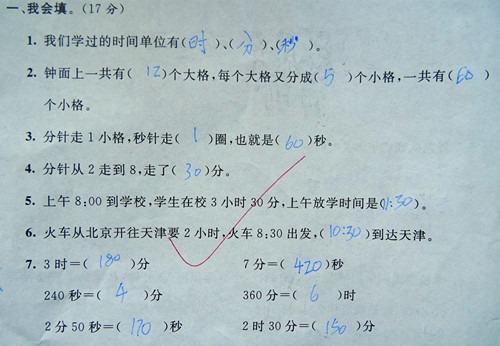 一、我会填。(17分)
1. 我们学过的时间单位有(时)、(分)、(秒)。
2. 钟面上一共有(12)个大格,每个大格又分成(5)个小格,一共有(60)
个小格。
3. 分针走1小格,秒针走(1)圈,也就是(60)秒。
4. 分针从2走到8,走了(30)分。
5. 上午8:00到学校,学生在校3小时30分,上午放学时间是(11:30)。
6. 火车从北京开往天津要2小时,火车8:30出发,(10:30)到达天津。
7. 3时=(180)分 7分=(420)秒
240秒=(4)分 360分=(6)时
2分50秒=(170)秒 2时30分=(150)分